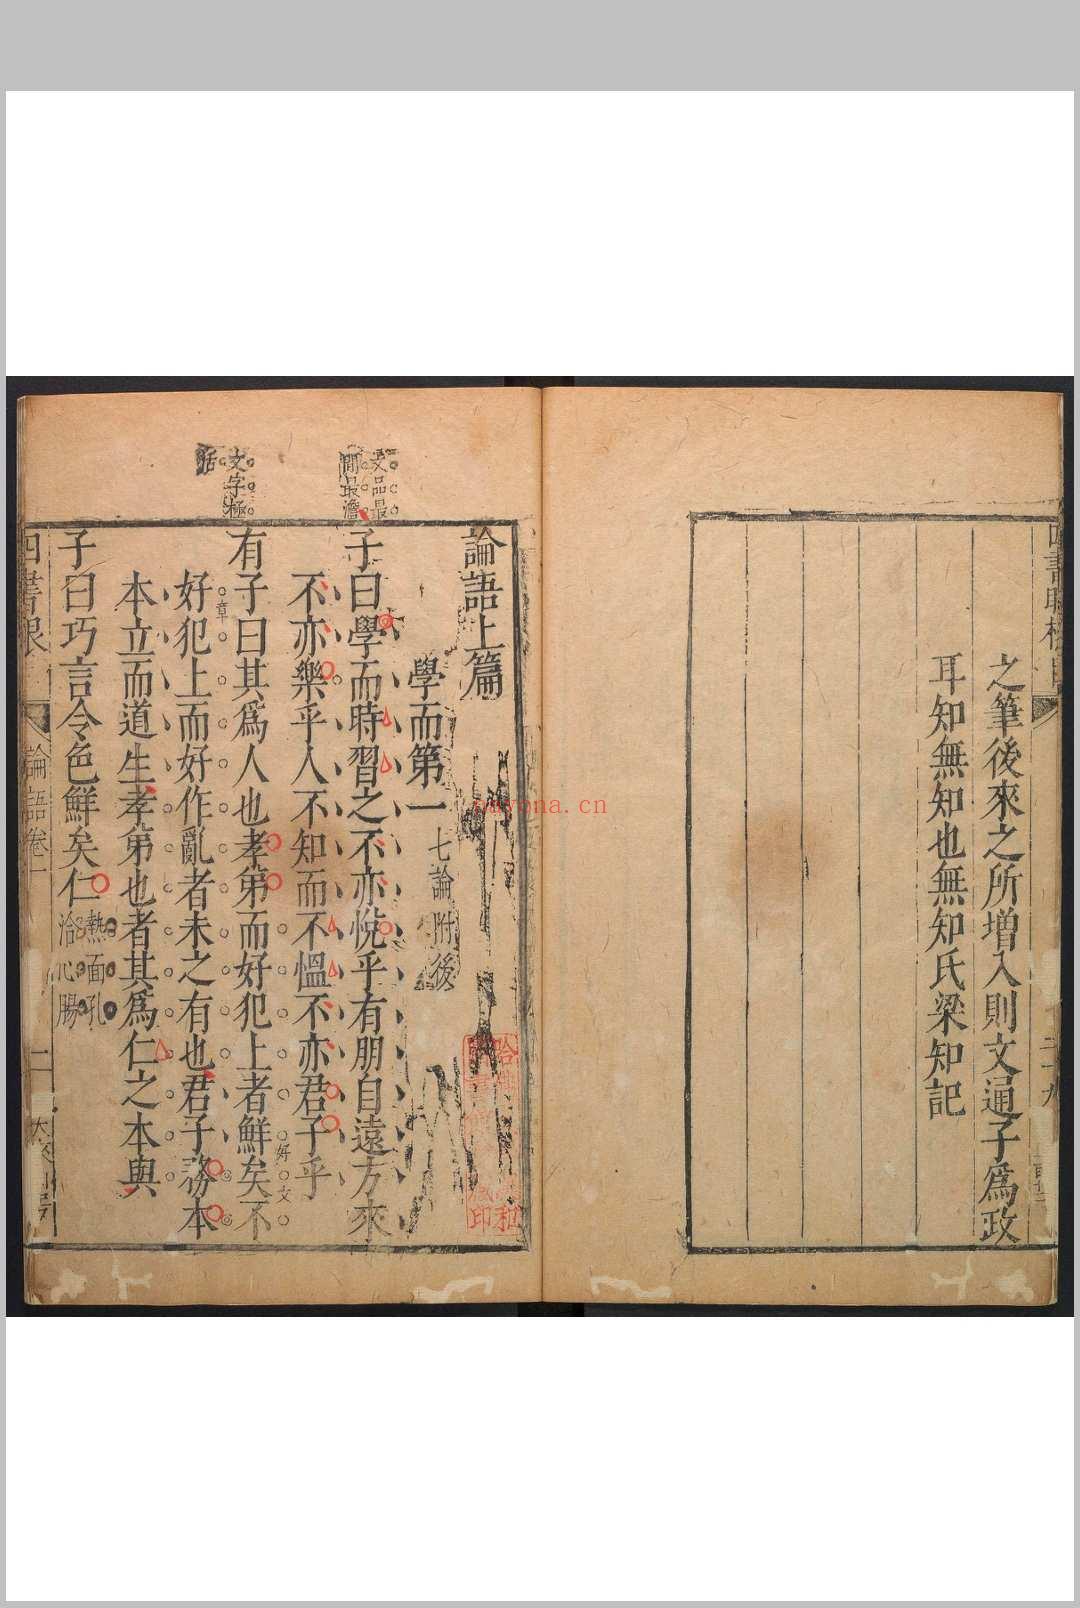 之筆後來之所增入則文通子爲政
耳知無知也無知氏梁知記
論語上篇
學而第一
七論附後
文品最
簡最澹
子曰學而時習之不亦悅乎有朋自遠方來
不亦樂乎人不知而不慍不亦君子乎
文字極
活
有子曰其爲人也孝第而好犯上者鮮矣不
好文
好犯上而好作亂者未之有也君子務本
章
本立而道生孝第也者其爲仁之本與
子曰巧言令色鮮矣仁
熱面孔
冶心腸
論語卷一
二
nayona.cn